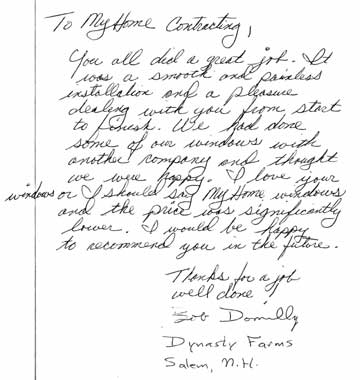 To My Home Contracting,
You all did a great job. It
was a smooth and painless
installation and a pleasure
dealing with you from start
to finish. We had done
some of our windows with
another company and thought
we were happy. I love your
windows or I should say My Home windows
and the price was significantly
lower. I would be happy
to recommend you in the future.
Thanks for a job
well done
Bob Donnilly
Dynasty Farms
Salem, N.H.